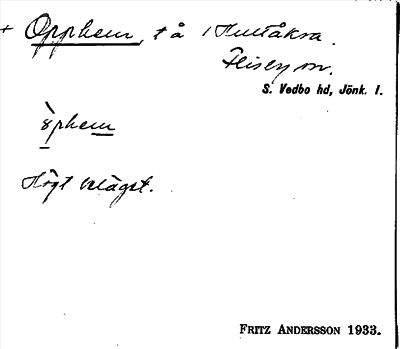 + Opphem, t å 1 Hultåkra.
Flisby sn.
S. Vedbo hd, Jönk. l.
òphem
Högt beläget.
FRITZ ANDERSSON 1933.